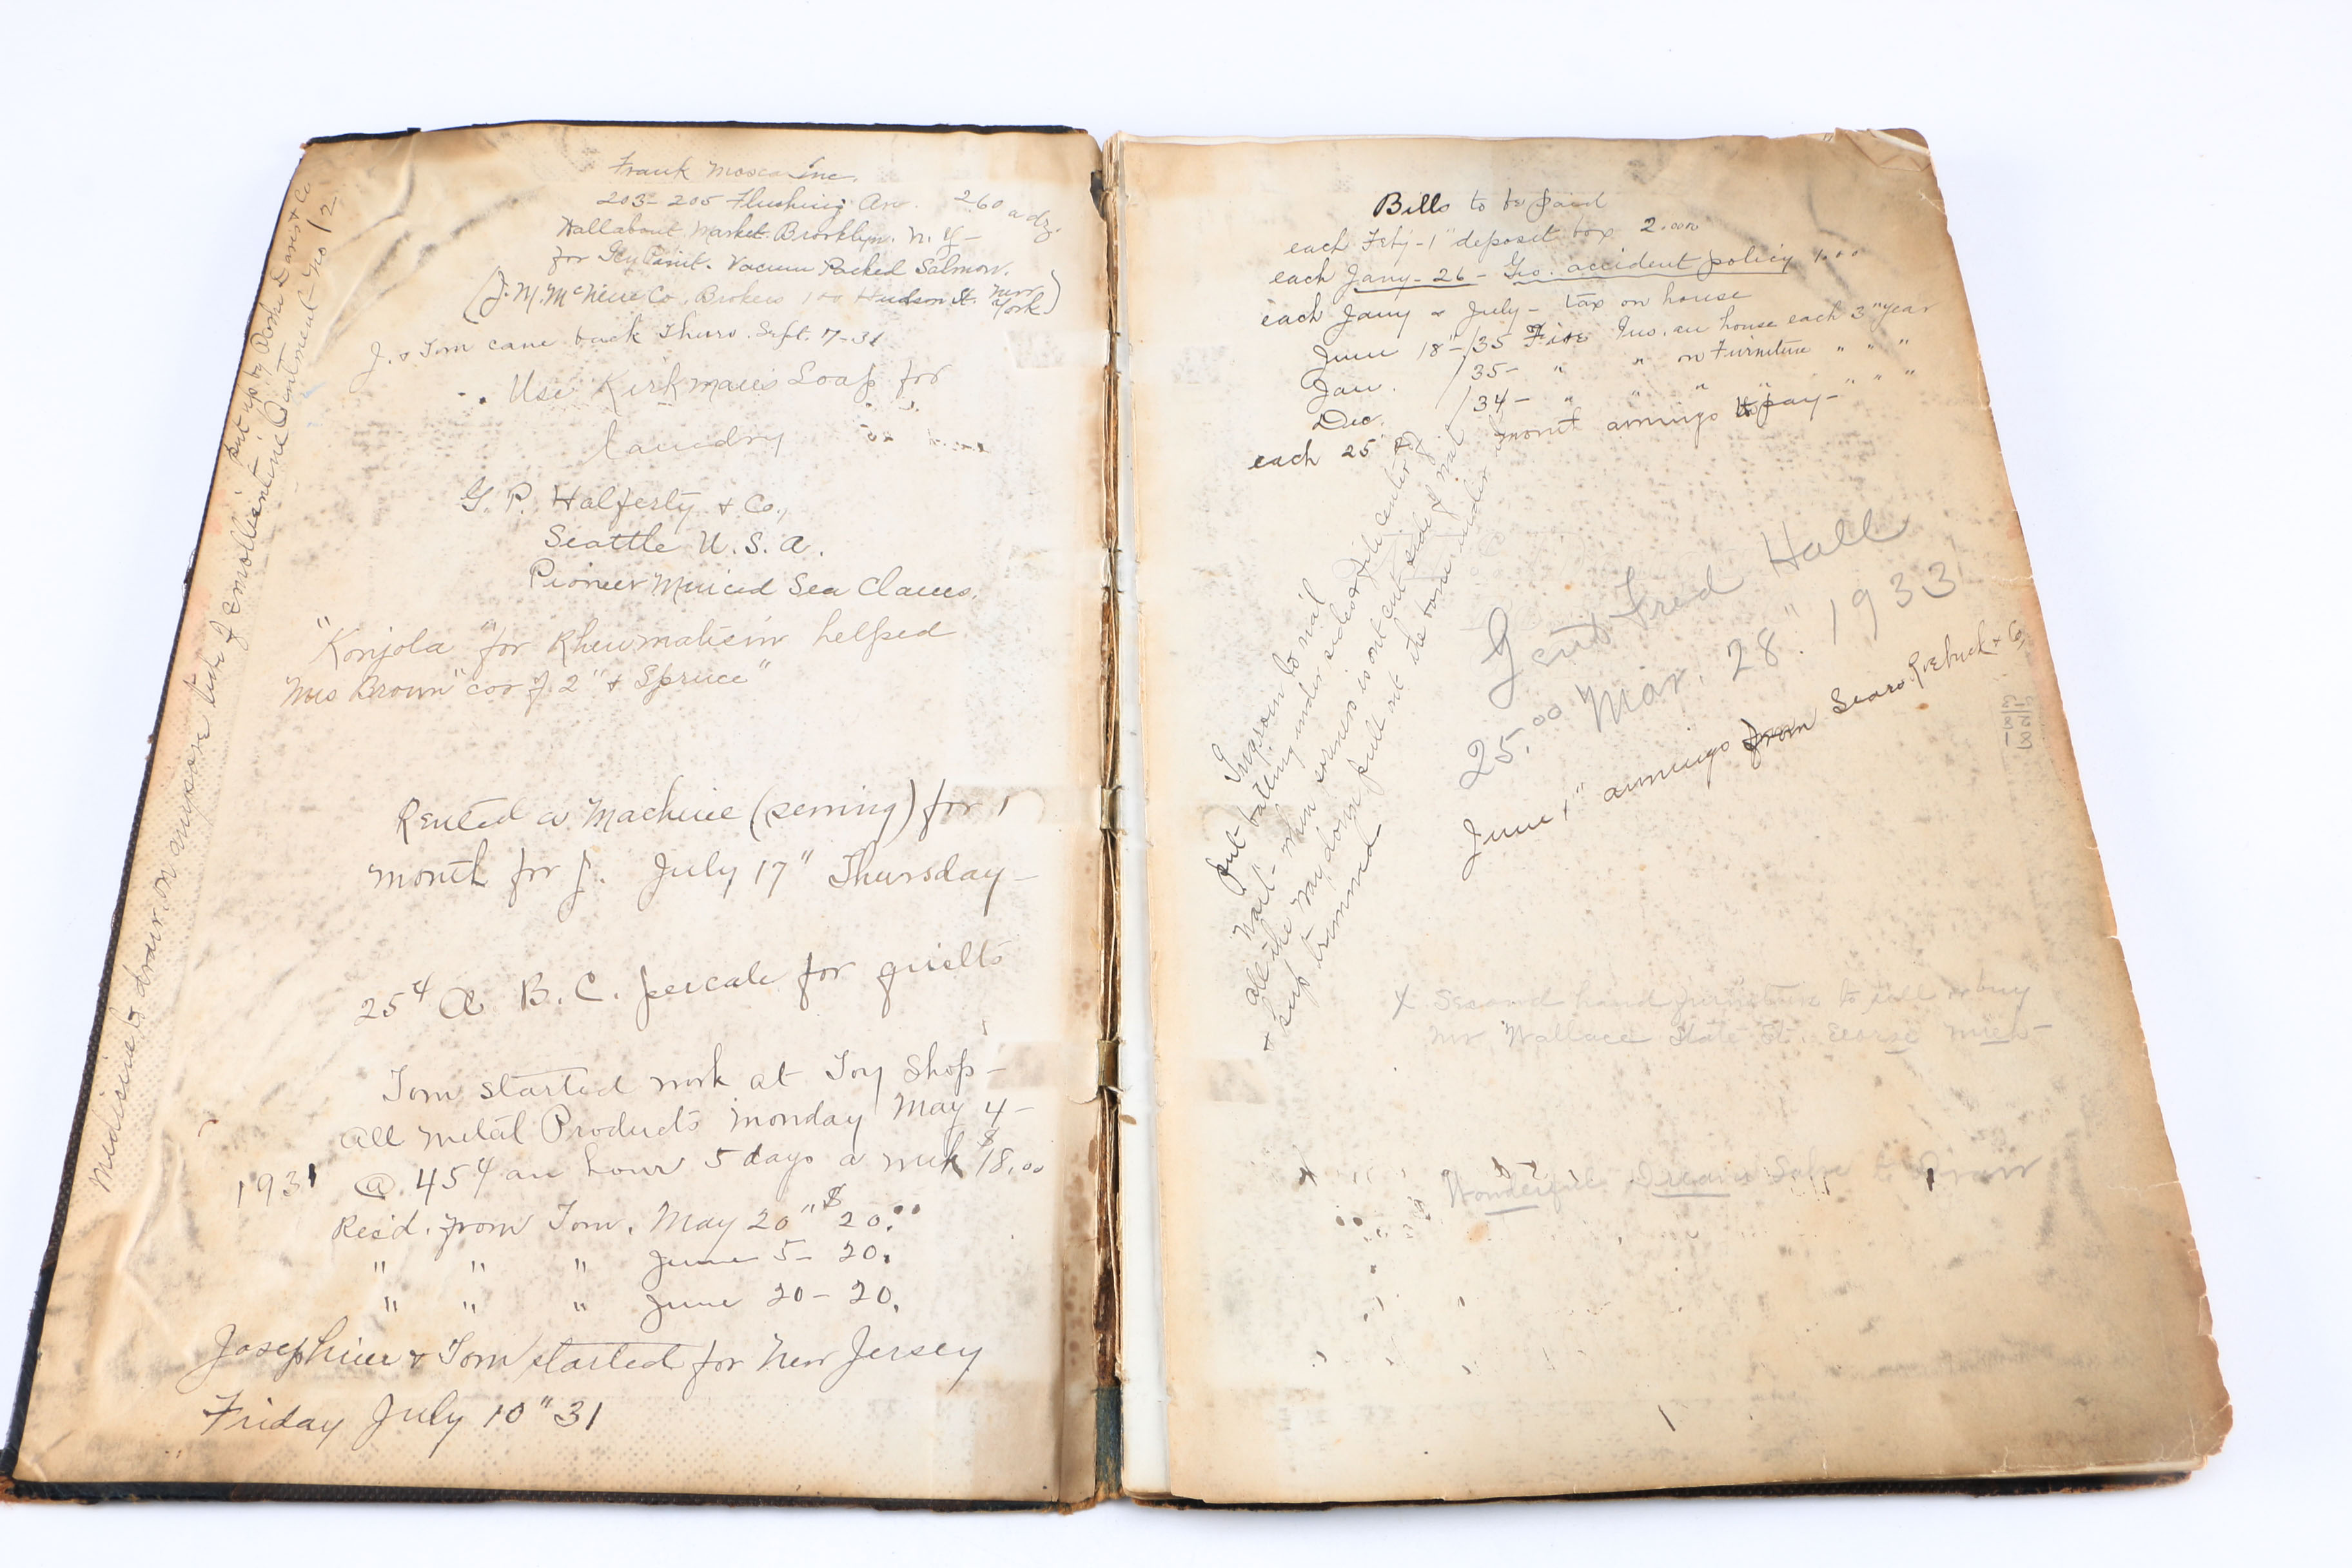 Frank Mosca Inc.
203-205 Flushing Av. 260 a dz.
Wallabout Market Brooklyn. N. Y-
for Icy Point. Vacuum Packed Salmon.
(J. M. McNeil Co. Brokers 100 Hudson St. New York)
J. & Tom came back Thurs. Sept. 17-31
Use Kirkman's Soap for
laundry
G. P. Halferty & Co.,
Seattle U. S. A.
Pioneer Minced Sea Clams.
"Konjola" for Rheumatism helped
Mrs Brown "cor of 2" & Spruce"
Rented a Machine (sewing) for 1
month for J. July 17" Thursday-
25¢ A. B. C. percale for quilts
Tom started work at Toy Shop-
All Metal Products Monday May 4-
1931 @ 45¢ an hour 5 days a week $18.00
Rec'd. from Tom. May 20" $20.00
" " " June 5- 20.
" " " June 20- 20.
Josephine & Tom started for New Jersey
Friday July 10" 31
Medicine to draw on any sore tube of emollientine put up by Parke Davis & Co
Ointment No 12
Bills to be paid
each Feby-1" deposit box 2.00
each Jany-26- Geo. accident policy 1.00
each Jany & July- tax on house
June 18"-/35 Fire Ins. on house each 3" year
Jan. /35- " " on Furniture " " "
Dec. /34- " " " " " " "
each 25 of month awnings to pay-
Ingrown to nail
put batting under sides & file center of
nail- when soreness is out cut side of nail
all the way down put not the batting under
& keep trimmed
Sent Fred Hall
25.00 Mar. 28" 1933
June 1" awnings from Sears Roebuck & Co
x Second hand furniture to sell or buy
Mr Wallace State St.
Wonderful Dream Salve to Draw